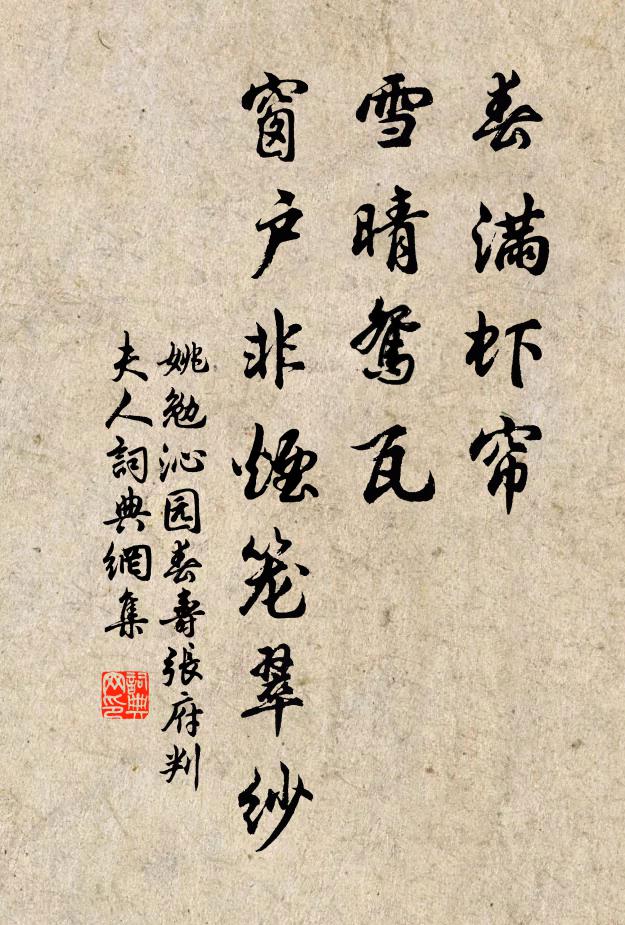 春满虾帘
雪晴鸳瓦
窗户非烟笼翠纱
姚勉沁园春寿张府判
夫人詞典網集
詞典网印